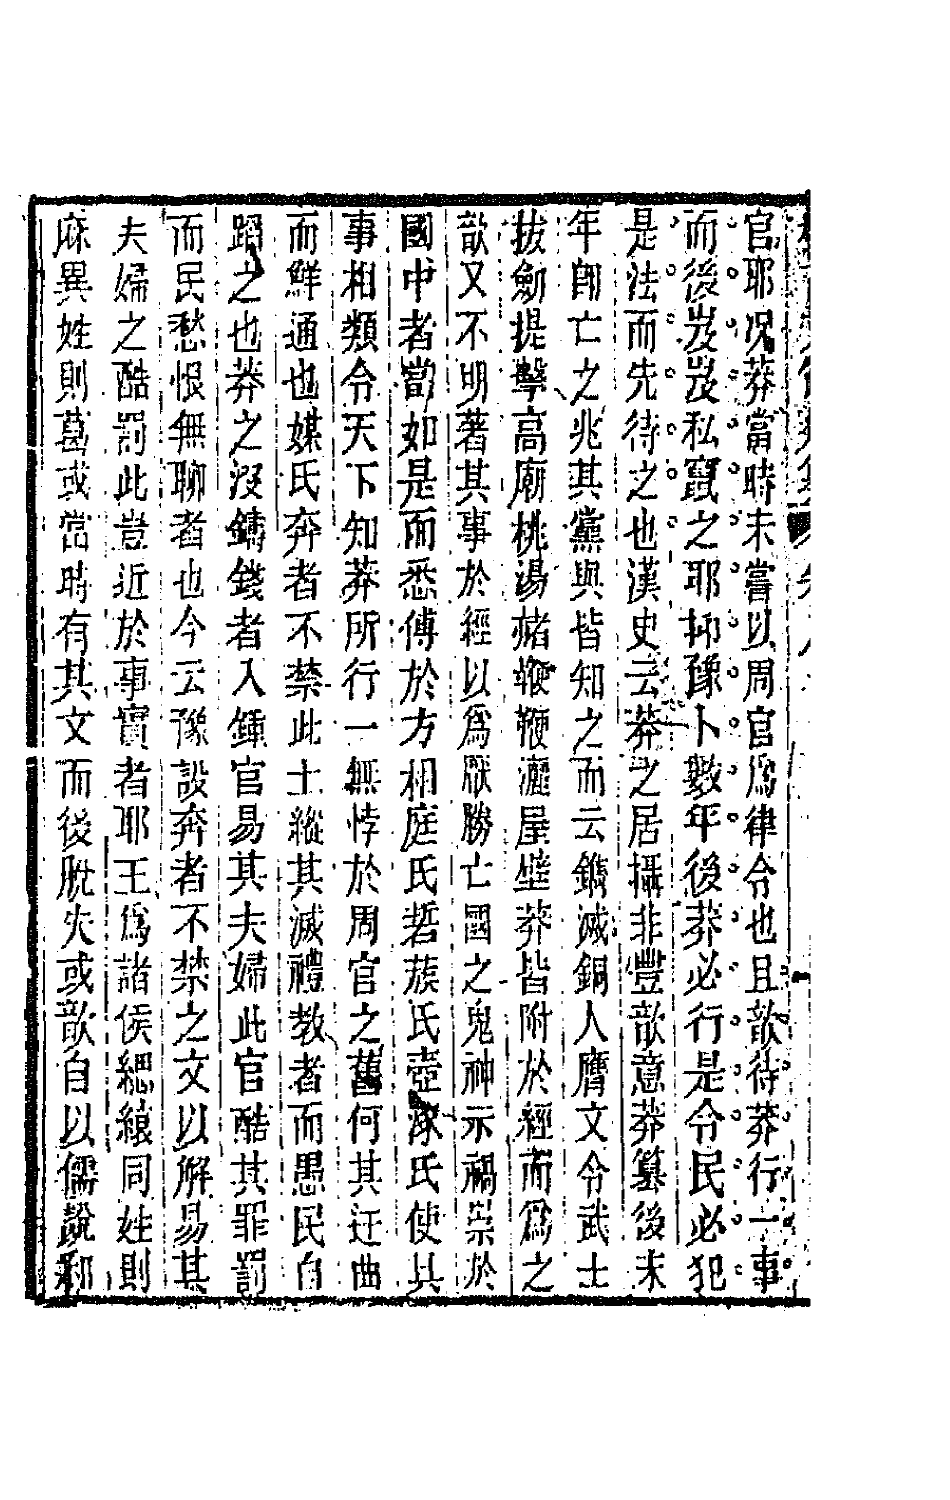 官耶况莽當時未嘗以周官爲律令也且歆待莽行一事
而後岌岌私竄之耶抑豫卜數年後莽必行是令民必犯
是法而先待之也漢史云莽之居攝非豐歆意莽篡後未
年卽亡之兆其黨與皆知之而云鐫滅銅人膺文令武士
拔劍提擊高廟桃湯赭鞭鞭灑屋壁莽皆附於經而爲之
歆又不明著其事於經以爲厭勝亡國之鬼神示禍祟於
國中者當如是而悉傅於方相庭氏硩蔟氏壺涿氏使其
事相類令天下知莽所行一無悖於周官之舊何其迂曲
而鮮通也媒氏奔者不禁此士縱其滅禮教者而愚民自
蹈之也莽之沒鑄錢者入鍾官易其夫婦此官酷其罪罰
而民愁恨無聊者也今云豫設奔者不禁之文以解易其
夫婦之酷罰此豈近於事實者耶王爲諸侯緦縗同姓則
麻異姓則葛或當時有其文而後脫失或歆自以儒說鄒